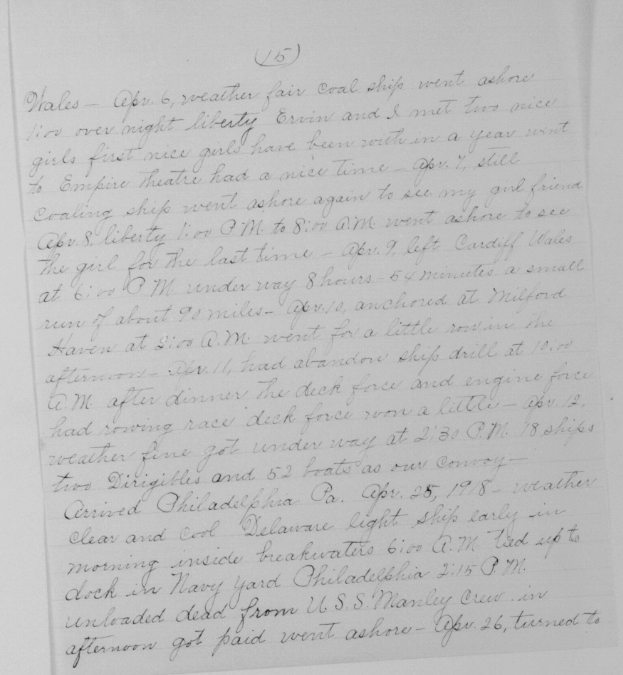 (15)
Wales - Apr. 6, weather fair coal ship went ashore
1:00 over night liberty Ervin and I met two nice
girls first nice girls have been with in a year went
to Empire Theatre had a nice time - Apr. 7, still
coaling ship went ashore again to see my girl friend
Apr. 8, liberty 1:00 P.M. to 8:00 A.M. went ashore to see
the girl for the last time - Apr. 9, left Cardiff Wales
at 6:00 P.M. under way 8 hours - 54 minutes a small
run of about 90 miles - Apr. 10, anchored at Milford
Haven at 3:00 A.M. went for a little row in the
afternoon - Apr. 11, had abandon ship drill at 10:00
A.M. after dinner the deck force and engine force
had rowing race deck force won a little - Apr. 12.
weather fine got under way at 2:30 P.M. 18 ships
two Dirigibles and 52 boats as our convoy -
Arrived Philadelphia Pa. Apr. 25, 1918 - weather
clear and cool Delaware light ship early in
morning inside breakwaters 6:00 A.M. tied up to
dock in Navy Yard Philadelphia 2:15 P.M.
unloaded dead from U.S.S. Manley crew in
afternoon got paid went ashore - Apr. 26, turned to